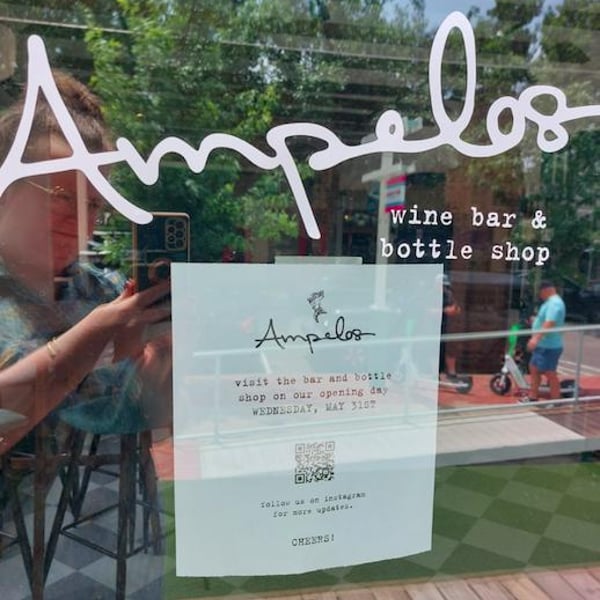 Ampelos
wine bar &
bottle shop
Ampelos
visit the bar and bottle
shop on our opening day
WEDNESDAY, MAY 31ST
follow us on instagram
for more updates.
CHEERS!